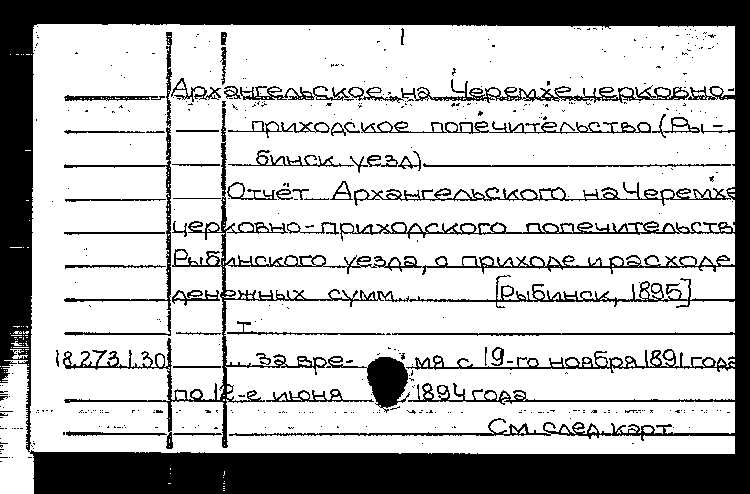 Архангельское на Черемхе церковно-
приходское попечительство (Ры-
бинск. уезд).
Отчёт Архангельского на Черемхе
церковно-приходского попечительств
Рыбинского уезда, о приходе и расходе
денежных сумм... [Рыбинск, 1895]
т.
18.273.1.30 ... за вре- мя с 19-го ноября 1891 года
по 12-е июня 1894 года
См. след. карт